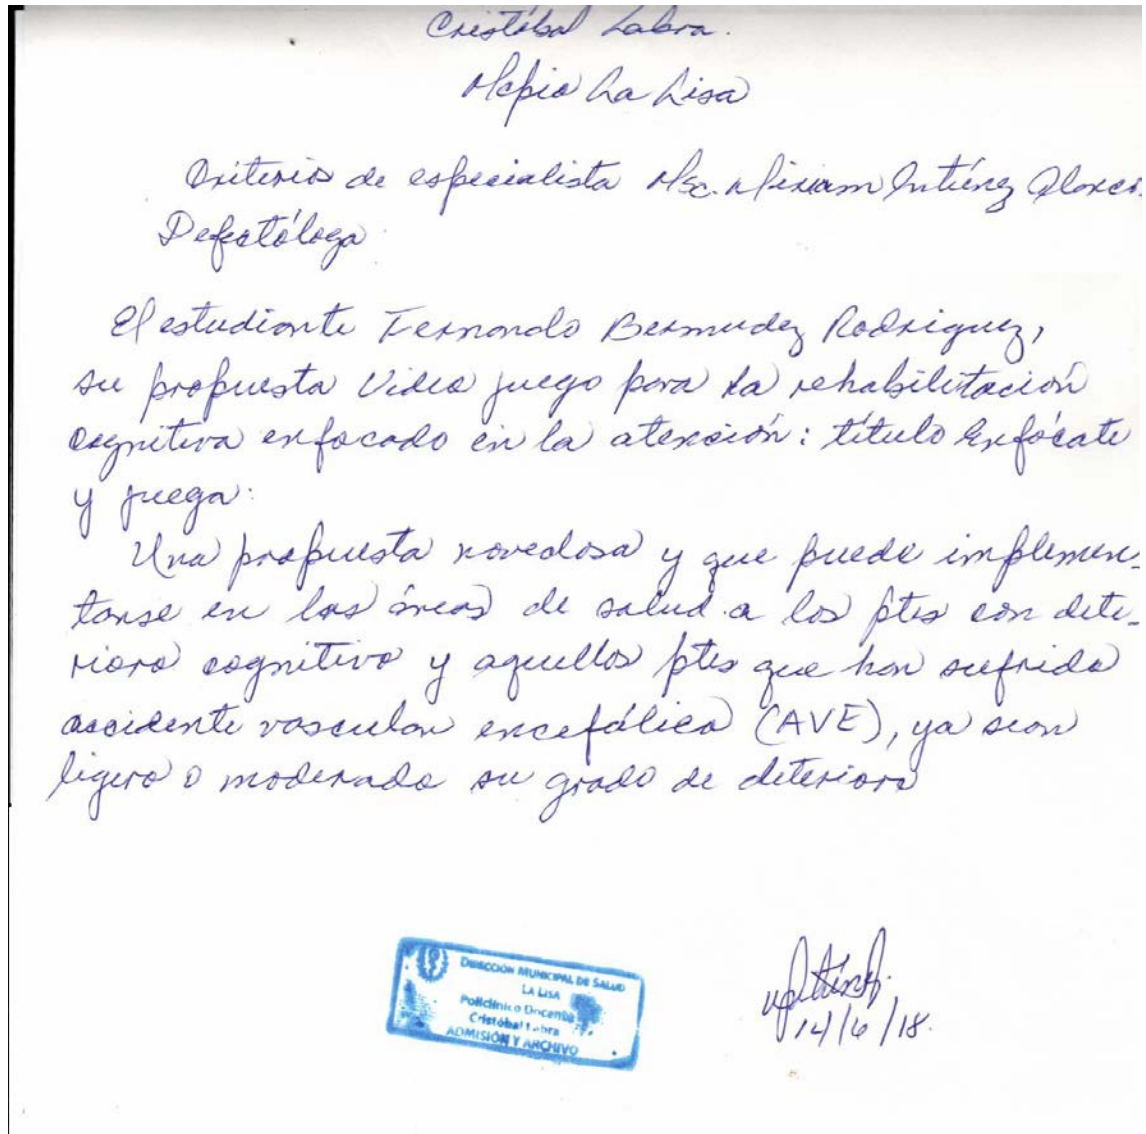 Cristóbal Labra.
Mcpio La Lisa
Criterios de especialista Msc. Miriam
Defectóloga
El estudiante Fernando Bermudez Rodriguez,
su propuesta Video juego para la rehabilitación
cognitiva enfocado en la atención: título Enfócate
y juega.
Una propuesta novedosa y que puede implemen-
tarse en las áreas de salud a los ptes con dete-
rioro cognitivo y aquellos ptes que han sufrido
accidente vascular encefálico (AVE), ya sean
ligero o moderado su grado de deterioro
DIRECCIÓN MUNICIPAL DE SALUD
LA LISA
Policlínico Docente
Cristóbal Labra
ADMISIÓN Y ARCHIVO
14/6/18.